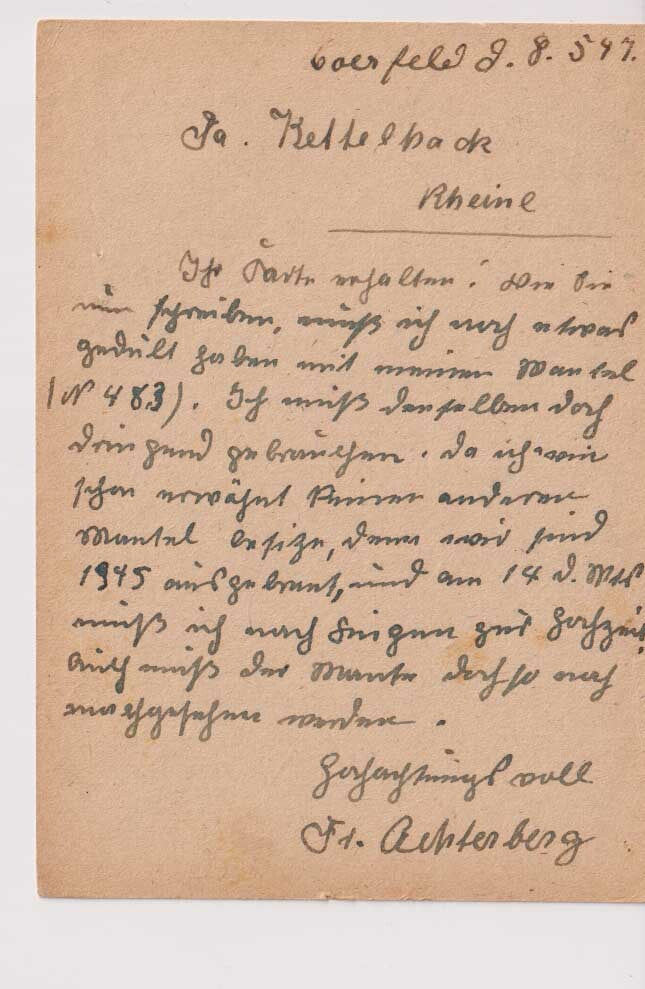 Coesfeld d. 8. 5 47.
Fa. Kettelhack
Rheine
Ihr Karte erhalten! Wie Sie
nun schreiben, muß ich noch etwas
gedült haben mit meinen Mantel
(N 483). Ich muß denselben doch
dringend gebrauchen. da ich wie
schon erwähnt keinen anderen
Mantel besitze, denn wir sind
1945 ausgebrant, und am 14 d. Mts
muß ich nach zur Hochzeit,
Auch muß der Mante doch so noch
nachgesehen werden.
Hochachtungsvoll
Fr. Achterberg